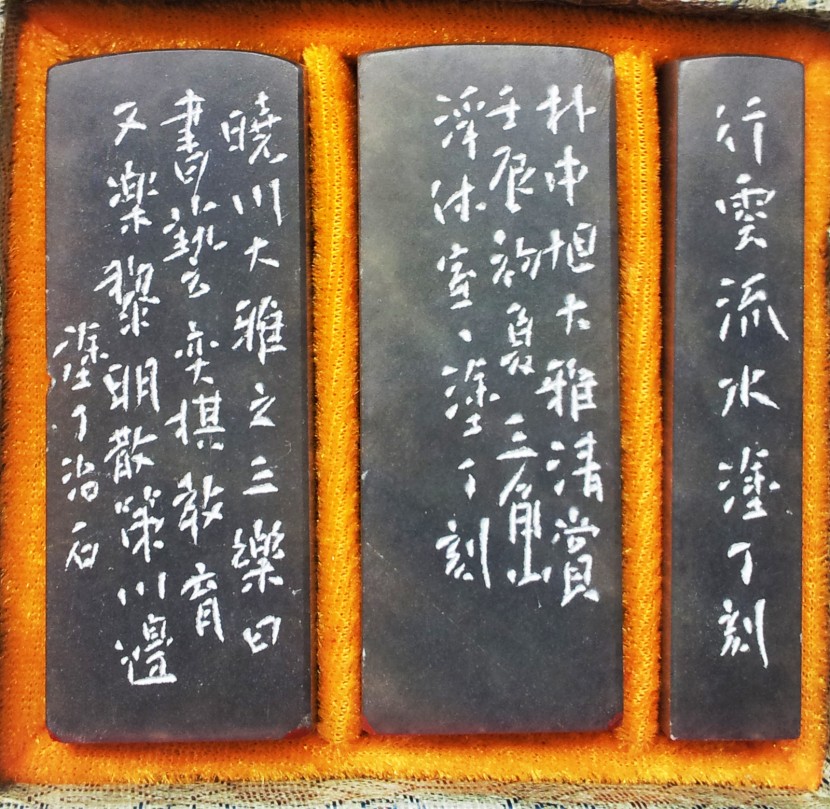 行雲流水塗丁刻
朴 旭大雅清賞
壬辰初夏三角山
浮休室、塗丁刻
曉川大雅之三樂曰
書藝奕棋敎育
又楽黎明散策川邊
塗丁治石